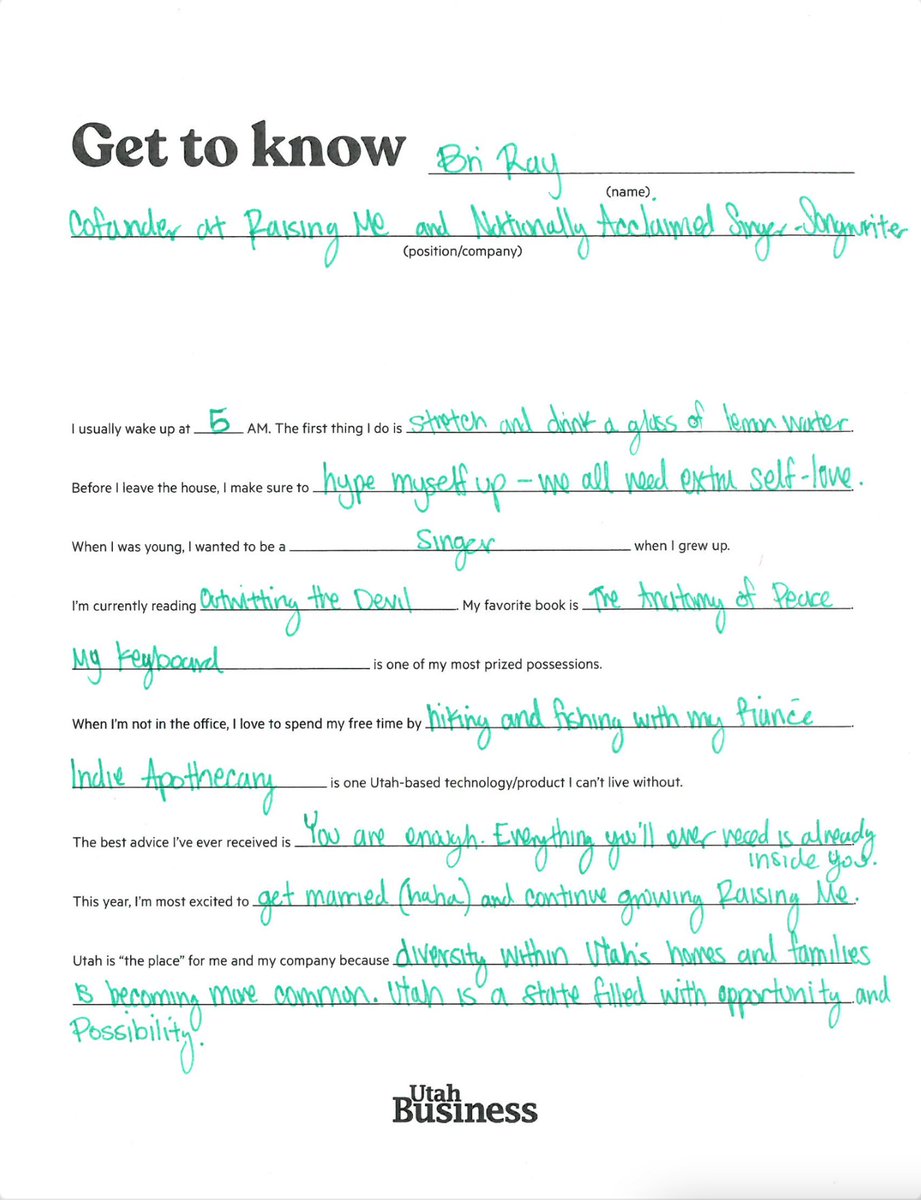 Get to know Bri Ray
(name)
Cofounder at Raising Me and Nationally Acclaimed Singer-Songwriter
(position/company)
I usually wake up at 5 AM. The first thing I do is stretch and drink a glass of lemon water
Before I leave the house, I make sure to hype myself up – we all need extra self-love.
When I was young, I wanted to be a Singer when I grew up.
I'm currently reading Outwitting the Devil. My favorite book is The Anatomy of Peace
My keyboard is one of my most prized possessions.
When I'm not in the office, I love to spend my free time by hiking and fishing with my fiancē
Indie Apothecary is one Utah-based technology/product I can't live without.
The best advice I've ever received is You are enough. Everything you'll ever need is already
inside you.
This year, I'm most excited to get married (haha) and continue growing Raising Me.
Utah is "the place" for me and my company because diversity within Utah's homes and families
is becoming more common. Utah is a state filled with opportunity and
Possibility.
Utah
Business